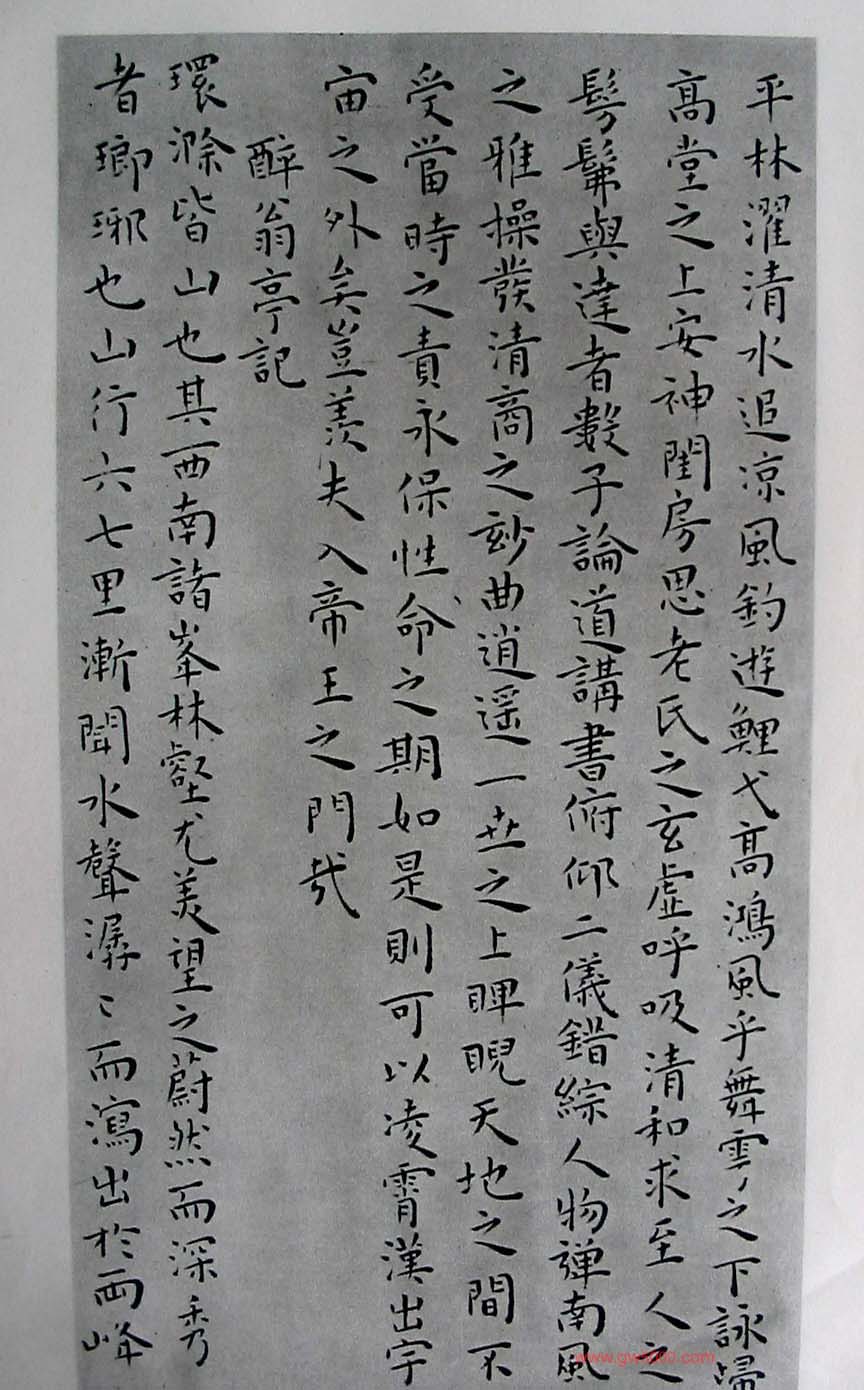 平林濯清水追凉風釣遊鯉弋高鴻風乎舞雩之下詠歸
高堂之上安神閨房思老氏之玄虚呼吸清和求至人之
髣髴與達者數子論道講書俯仰二儀錯綜人物彈南風
之雅操發清商之玅曲逍遥一世之上睥睨天地之間不
受當時之責永保性命之期如是則可以凌霄漢出宇
宙之外矣豈羡夫入帝王之門哉
醉翁亭記
環滁皆山也其西南諸峯林壑尤美望之蔚然而深秀
者瑯琊也山行六七里漸聞水聲潺〻而瀉出於兩峰
www.gw1000.com